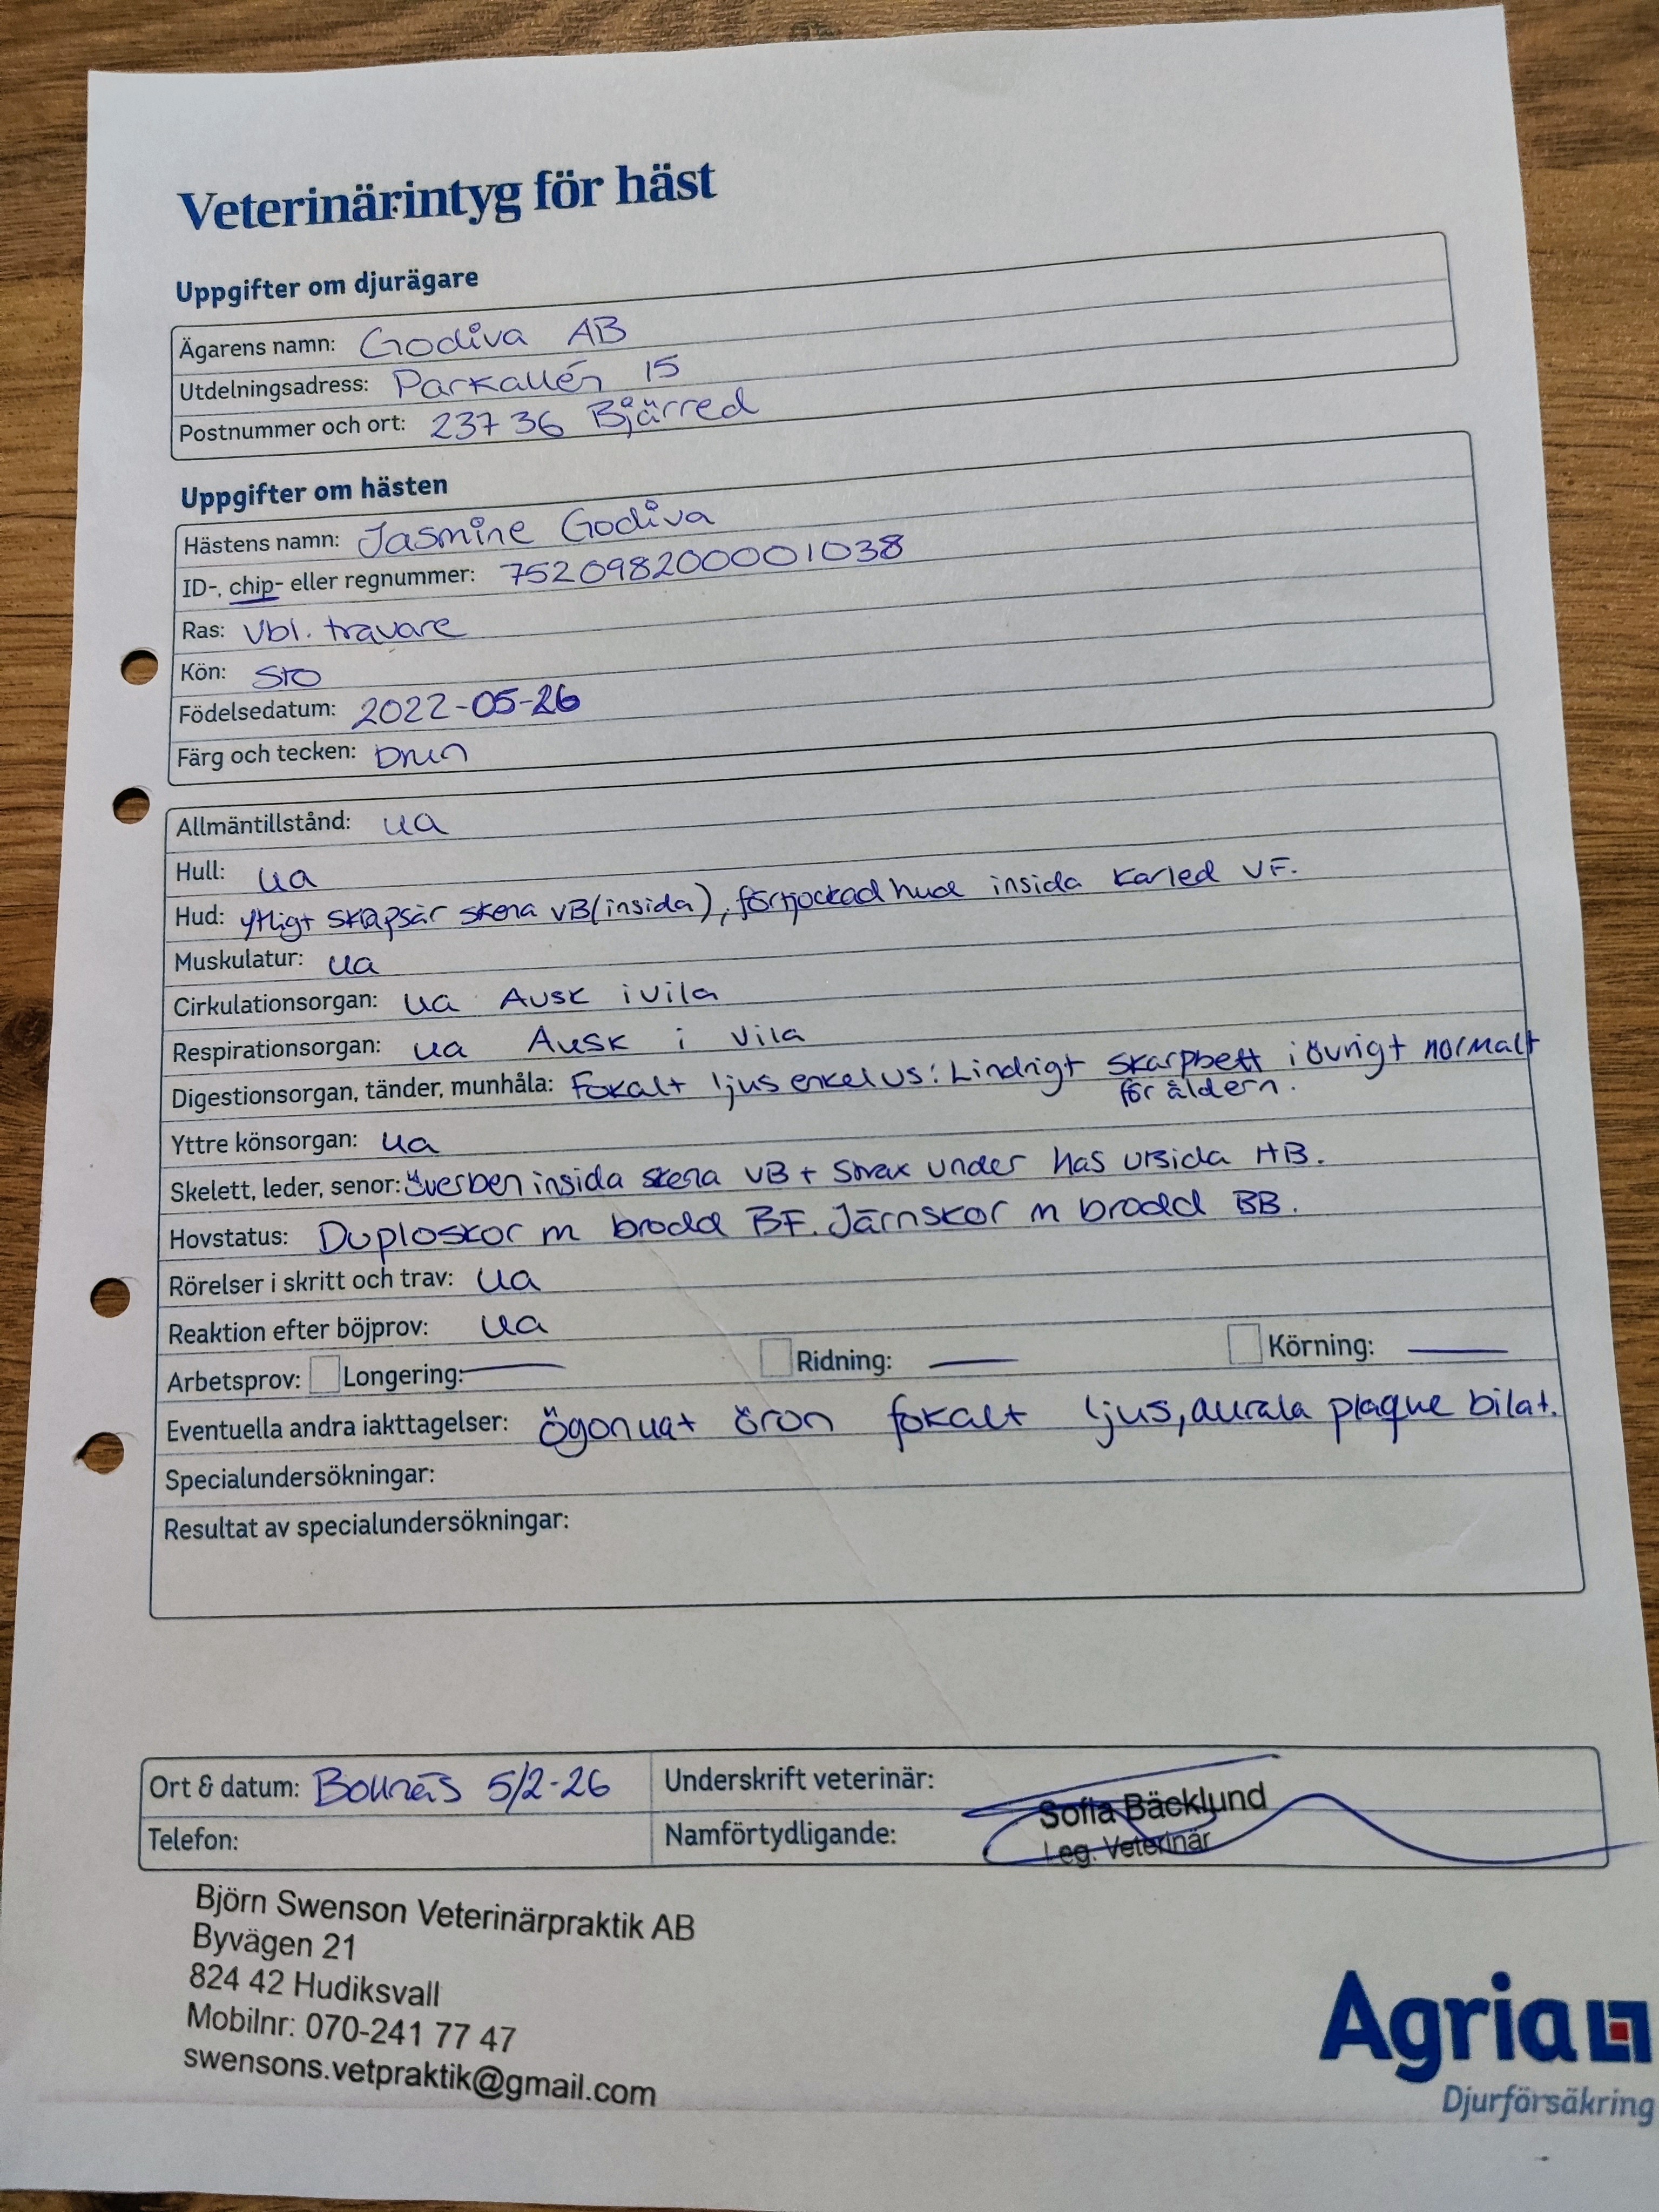 Veterinärintyg för häst
Uppgifter om djurägare
Ägarens namn: Godiva AB
Utdelningsadress: Parkallén 15
Postnummer och ort: 237 36 Bjärred
Uppgifter om hästen
Hästens namn: Jasmine Godiva
ID-, chip- eller regnummer: 752098200001038
Ras: Vbl. travare
Kön: Sto
Födelsedatum: 2022-05-26
Färg och tecken: Brun
Allmäntillstånd: ua
Hull: ua
Hud: ytligt skrapsår skena VB (insida), förtjockad hud insida karled VF.
Muskulatur: ua
Cirkulationsorgan: ua Ausk i vila
Respirationsorgan: ua Ausk i vila
Digestionsorgan, tänder, munhåla: Fokalt ljus enkel us: Lindrigt skarpbett i övrigt normalt
för åldern.
Yttre könsorgan: ua
Skelett, leder, senor: överben insida skena VB + strax under has utsida HB.
Hovstatus: Duploskor m brodd BF. Järnskor m brodd BB.
Rörelser i skritt och trav: ua
Reaktion efter böjprov: ua
Arbetsprov: Longering: — Ridning: — Körning: —
Eventuella andra iakttagelser: ögon ua+ öron fokalt ljus, aurala plaque bilat.
Specialundersökningar:
Resultat av specialundersökningar:
Ort & datum: Bollnäs 5/2-26 Underskrift veterinär:
Sofia Bäcklund
Telefon: Namförtydligande: Leg. Veterinär
Björn Swenson Veterinärpraktik AB
Byvägen 21
824 42 Hudiksvall
Mobilnr: 070-241 77 47
swensons.vetpraktik@gmail.com
Agria
Djurförsäkring